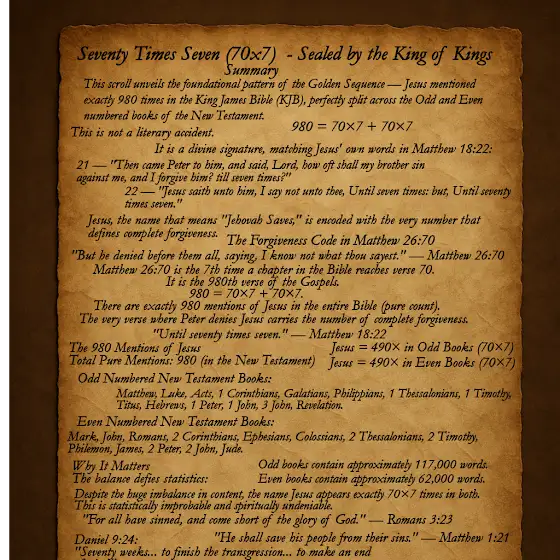 Seventy Times Seven (70×7) - Sealed by the King of Kings
Summary
This scroll unveils the foundational pattern of the Golden Sequence — Jesus mentioned
exactly 980 times in the King James Bible (KJB), perfectly split across the Odd and Even
numbered books of the New Testament.
980 = 70×7 + 70×7
This is not a literary accident.
It is a divine signature, matching Jesus' own words in Matthew 18:22:
21 — "Then came Peter to him, and said, Lord, how oft shall my brother sin
against me, and I forgive him? till seven times?"
22 — "Jesus saith unto him, I say not unto thee, Until seven times: but, Until seventy
times seven."
Jesus, the name that means "Jehovah Saves," is encoded with the very number that
defines complete forgiveness.
The Forgiveness Code in Matthew 26:70
"But he denied before them all, saying, I know not what thou sayest." — Matthew 26:70
Matthew 26:70 is the 7th time a chapter in the Bible reaches verse 70.
It is the 980th verse of the Gospels.
980 = 70×7 + 70×7.
There are exactly 980 mentions of Jesus in the entire Bible (pure count).
The very verse where Peter denies Jesus carries the number of complete forgiveness.
"Until seventy times seven." — Matthew 18:22
The 980 Mentions of Jesus
Jesus = 490× in Odd Books (70×7)
Total Pure Mentions: 980 (in the New Testament)
Jesus = 490× in Even Books (70×7)
Odd Numbered New Testament Books:
Matthew, Luke, Acts, 1 Corinthians, Galatians, Philippians, 1 Thessalonians, 1 Timothy,
Titus, Hebrews, 1 Peter, 1 John, 3 John, Revelation.
Even Numbered New Testament Books:
Mark, John, Romans, 2 Corinthians, Ephesians, Colossians, 2 Thessalonians, 2 Timothy,
Philemon, James, 2 Peter, 2 John, Jude.
Why It Matters
Odd books contain approximately 117,000 words.
The balance defies statistics:
Even books contain approximately 62,000 words.
Despite the huge imbalance in content, the name Jesus appears exactly 70×7 times in both.
This is statistically improbable and spiritually undeniable.
"For all have sinned, and come short of the glory of God." — Romans 3:23
Daniel 9:24:
"He shall save his people from their sins." — Matthew 1:21
"Seventy weeks... to finish the transgression... to make an end